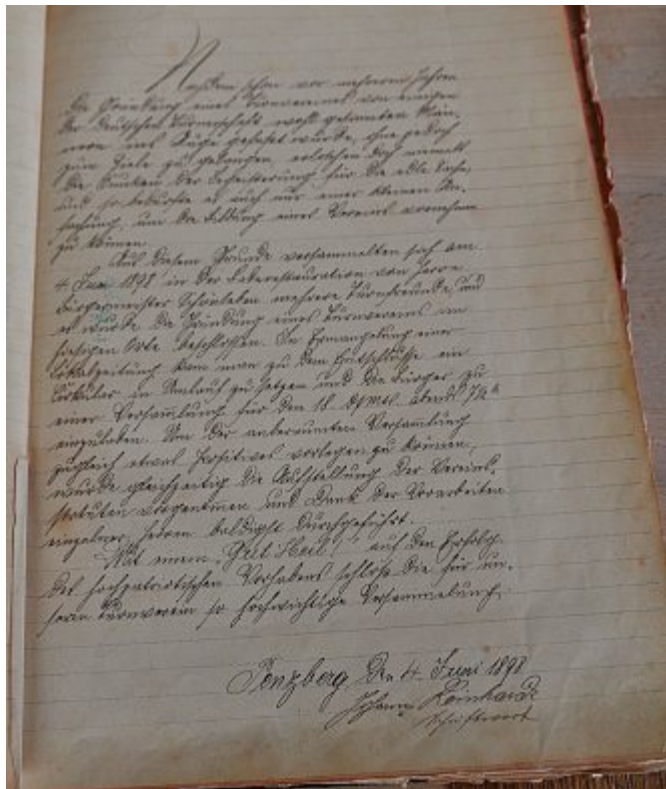 Nachdem schon vor mehreren Jahren
die Gründung eines Turnvereines von einigen
der deutschen Turnerschaft wohl gesinnten Män-
nern ins Auge gefasst wurde, ohne jedoch
zum Ziele zu gelangen, erloschen doch niemals
die Funken der Begeisterung für die edle Sache,
und so bedurfte es auch nur einer kleinen An-
fachung, um die Bildung eines Vereins vornehmen
zu können.
Aus diesem Grunde versammelten sich am
4. Juni 1898 in der Bakerestauration von Herrn
Bürgermeister Schönleben mehrere Turnfreunde, und
es wurde die Gründung eines Turnvereins am
hiesigen Orte beschlossen. In Ermangelung einer
Lokalzeitung kam man zu dem Entschlusse ein
Zirkular in Umlauf zu setzen und die Bürger zu
einer Versamlung für den 18. abends 7½ h
einzuladen. Um der anberaumten Versamlung
zugleich etwas Positives vorlegen zu können,
wurde gleichzeitig die Aufstellung der Vereins-
statuten vorgenommen und Dank der Vorarbeiten
einzelner Herrn baldigst durchgeführt.
Mit einem „Gut Heil!" auf den Erfolg
des hochpatriotischen Vorhabens schloß die für un-
seren Turnverein so hochwichtige Versammlung.
Penzberg, den 4. Juni 1898
Johann Reinhardt
Schriftwart